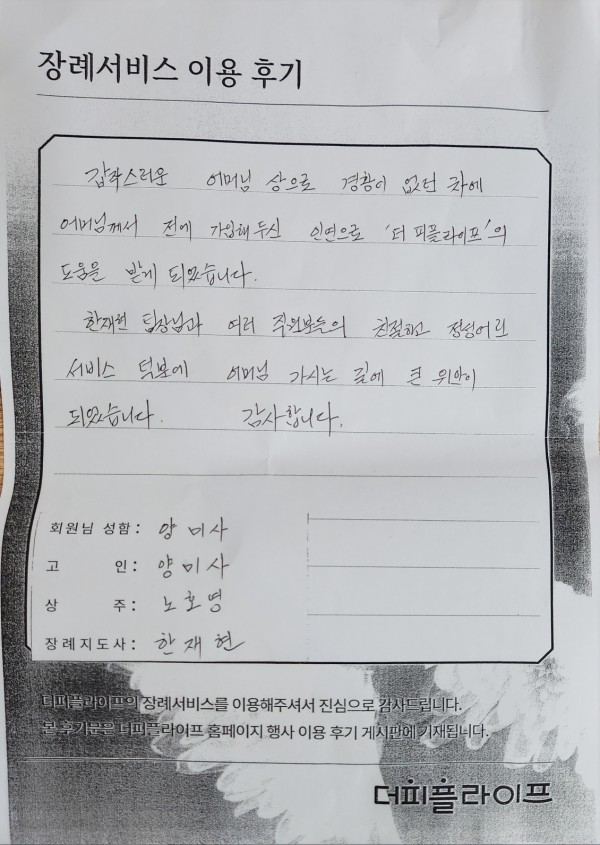 장례서비스 이용 후기
갑작스러운 어머님 상으로 경황이 없던 차에
어머님께서 전에 가입해두신 인연으로 '더 피플라이프'의
도움을 받게 되었습니다.
한재현 팀장님과 여러 직원분들의 친절하고 정성어린
서비스 덕분에 어머님 가시는 길에 큰 위안이
되었습니다. 감사합니다.
회원님 성함 : 양미사
고 인 : 양미사
상 주 : 노호영
장례지도사 : 한재현
더피플라이프의 장례서비스를 이용해주셔서 진심으로 감사드립니다.
본 후기문은 더피플라이프 홈페이지 행사 이용 후기 게시판에 기재됩니다.
더피플라이프